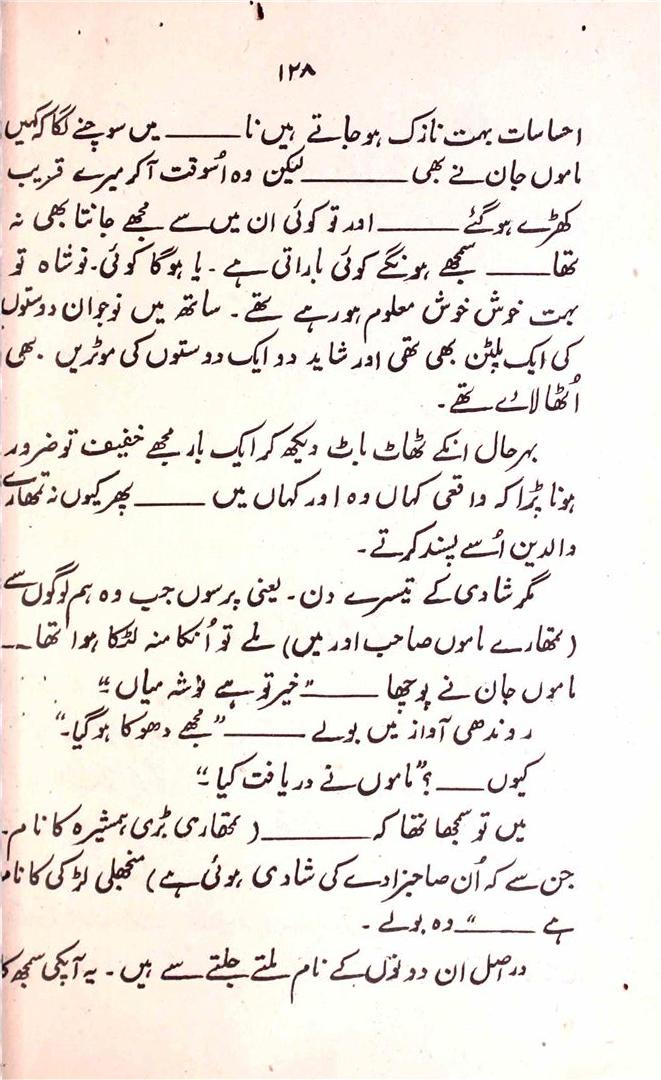 ۱۲۸
احساسات بہت نازک ہو جاتے ہیں نا ــــــ میں سوچنے لگا کہ کہیں
ماموں جان نے بھی ــــــ لیکن وہ اُسوقت آکر میرے قریب
کھڑے ہو گئے ــــــ اور تو کوئی ان میں سے مجھے جانتا بھی نہ
تھا ــــــ سمجھے ہونگے کوئی باراتی ہے ۔ یا ہوگا کوئی ۔ نوشاہ تو
بہت خوش خوش معلوم ہو رہے تھے ۔ ساتھ میں نوجوان دوستوں
کی ایک پلٹن بھی تھی اور شاید دو ایک دوستوں کی موٹریں بھی
اُٹھا لائے تھے ۔
بہر حال انکے ٹھاٹ باٹ دیکھ کر ایک بار مجھے خفیف تو ضرور
ہونا پڑا کہ واقعی کہاں وہ اور کہاں میں ــــــ پھر کیوں نہ تمھارے
والدین اُسے پسند کرتے ۔
مگر شادی کے تیسرے دن ۔ یعنی پرسوں جب وہ ہم لوگوں سے
(تمھارے ماموں صاحب اور میں) ملے تو اُنکا منہ لٹکا ہوا تھا ــــ
ماموں جان نے پوچھا ــــــ "خیر تو ہے نوشہ میاں "
روندھی آواز میں بولے ــــــ "مجھے دھوکا ہو گیا ۔"
کیوں ــــــ ؟" ماموں نے دریافت کیا "
میں تو سمجھا تھا کہ ــــــ ( تمھاری بڑی ہمشیرہ کا نام ۔
جن سے کہ اُن صاحبزادے کی شادی ہوئی ہے) منجھلی لڑکی کا نام
ہے ــــــ " وہ بولے ۔
در اصل ان دونوں کے نام ملتے جلتے سے ہیں ۔ یہ آپکی سمجھ کا